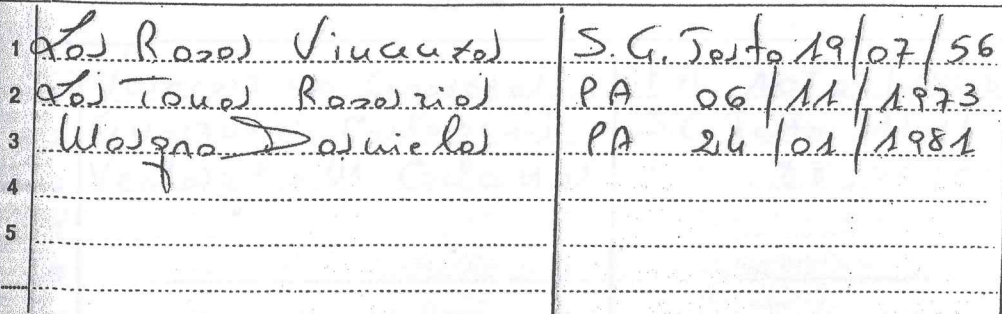 1 La Rosa Vincenza S.G. Jato 19/07/56
2 La Tona Rosaria PA 06/11/1973
3 Magna Daniela PA 24/01/1981
4
5